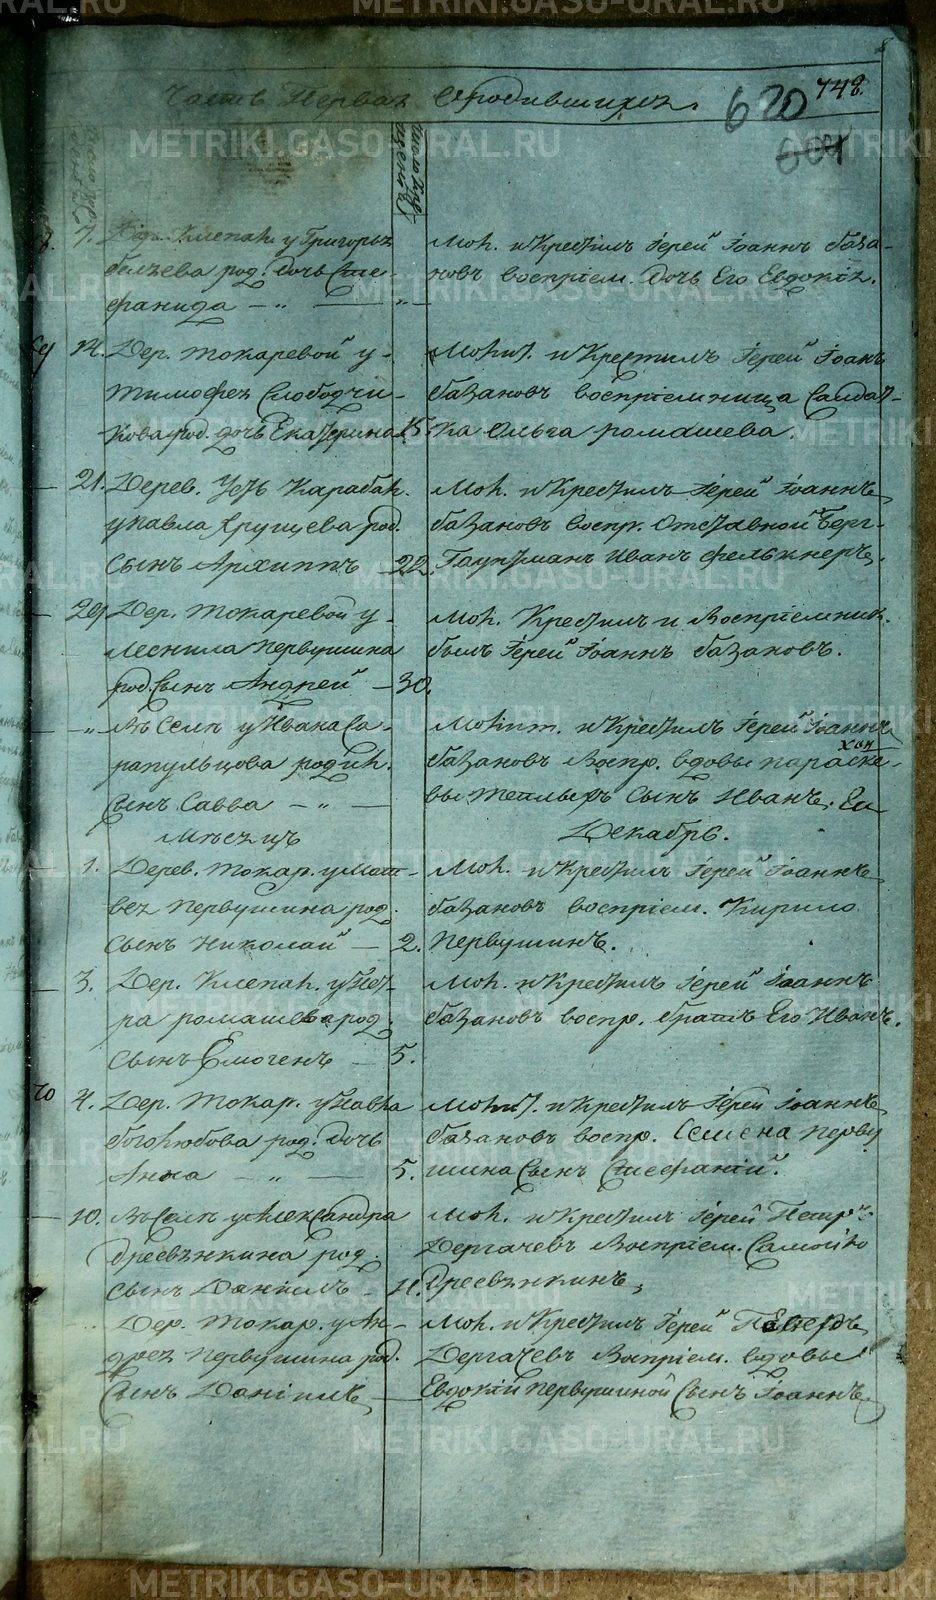 Часть Первая о родившихся.
748
670
604
7. Дер. Клепал. у Григорья
беляева род. Дочь Сте-
фанида — " —
Мол. и Крестилъ Іерей Іоаннъ база-
новъ воспріем. Дочь Его Евдокія.
14. Дер. токаревой у
тимофея Слободчи-
кова род. дочь Екатерина 15.
Молит. и Крестилъ Іерей Іоанъ
базановъ воспріемница Салдат-
ка Ольга ромашева.
21. Дерев. Усть Карабол.
у павла хрущева род.
Сынъ Архиппъ — 22.
Мол. и Крестилъ Іерей Іоаннъ
базановъ воспр. Отставной Берг-
Гауптман Иван фелькнеръ.
29. Дер. токаревой у
первушина
род. Сынъ Андрей — 30.
Мол. Крестилъ и Воспріемник.
былъ Іерей Іоаннъ базановъ.
" Въ Селе у Ивана Са-
рапульцова родил.
Сынъ Савва — " —
Молит. и Крестилъ Іерей Іоаннъ
базановъ Воспр. вдовы параске-
вы Сынъ Иванъ.
Месяцъ
Декабрь.
1. Дерев. токар. у мат-
вея первушина род.
Сынъ Николай — 2.
Мол. и Крестилъ Іерей Іоаннъ
базановъ воспріем. Кирило
первушинъ.
3. Дер. Клепал. у пет-
ра ромашева род.
Сынъ Ермогенъ — 5.
Мол. и Крестилъ Іерей Іоаннъ
базановъ воспр. братъ Его Иванъ.
70 4. Дер. токар. у павла
боголюбова род. Дочь
Анна — " — 5.
Молит. и Крестилъ Іерей Іоаннъ
базановъ воспр. Семена перву
шина Сынъ Стефаній.
10. Въ Селе у Александра
древянкина род.
Сынъ Даніилъ — 11.
Мол. и Крестилъ Іерей Петръ
Дергачевъ Воспріем. Самойло
древянкинъ,
Дер. токар. у Ан-
дрея первушина род.
Сынъ Даніилъ —
Мол. и Крестилъ Іерей Петеръ
Дергачевъ Воспріем. вдовы
Евдокіи первушиной Сынъ Іоаннъ.
METRIKI.GASO-URAL.RU